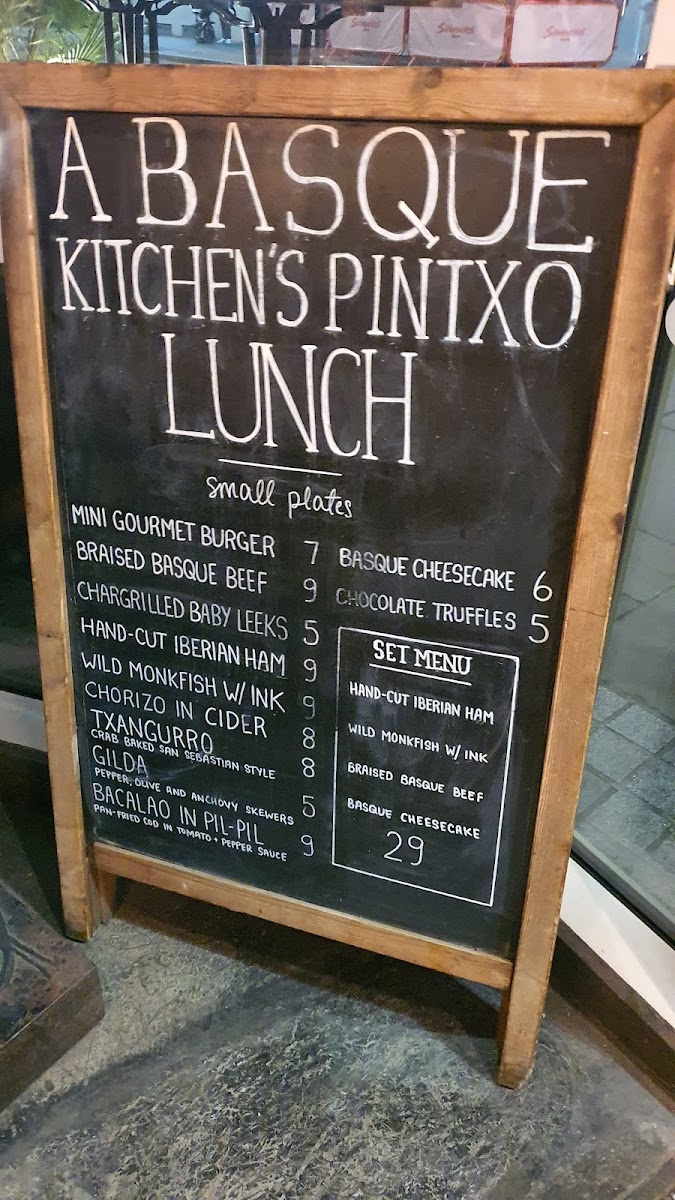 A BASQUE
KITCHEN'S PINTXO
LUNCH
small plates
MINI GOURMET BURGER 7
BRAISED BASQUE BEEF 9
CHARGRILLED BABY LEEKS 5
HAND-CUT IBERIAN HAM 9
WILD MONKFISH W/ INK 9
CHORIZO IN CIDER 8
TXANGURRO
CRAB BAKED SAN SEBASTIAN STYLE 8
GILDA
PEPPER, OLIVE AND ANCHOVY SKEWERS 5
BACALAO IN PIL-PIL
PAN-FRIED COD IN TOMATO + PEPPER SAUCE 9
BASQUE CHEESECAKE 6
CHOCOLATE TRUFFLES 5
SET MENU
HAND-CUT IBERIAN HAM
WILD MONKFISH W/ INK
BRAISED BASQUE BEEF
BASQUE CHEESECAKE
29